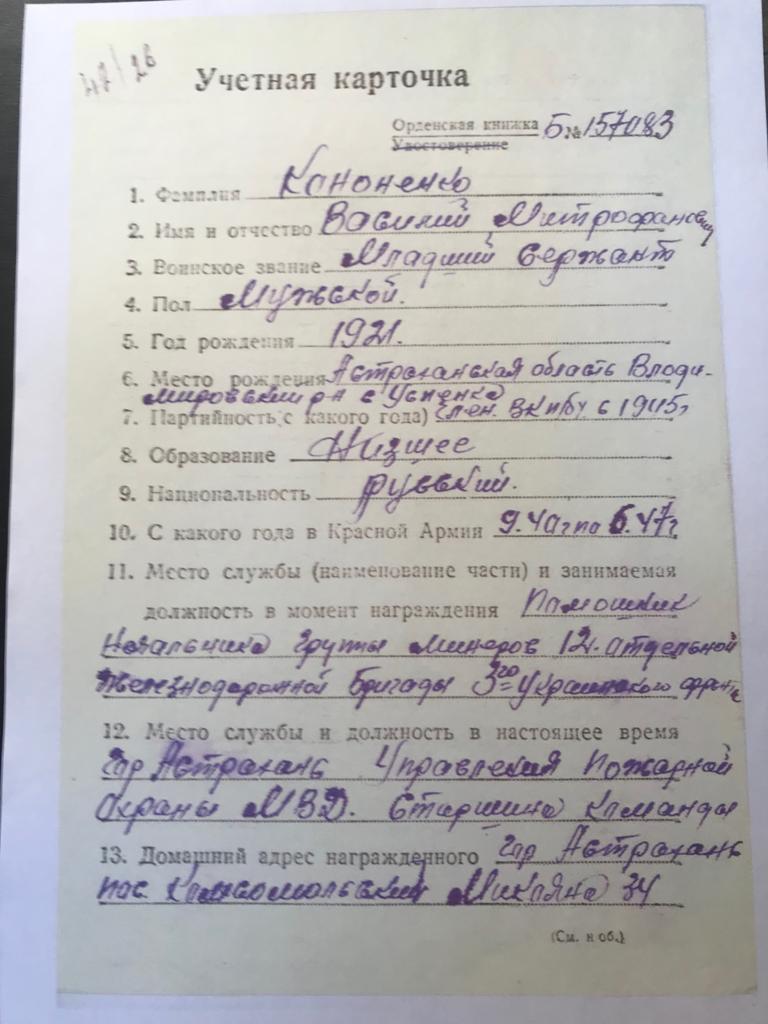 42/26
Учетная карточка
Орденская книжка Б № 157083
Удостоверение
1. Фамилия Кононенко
2. Имя и отчество Василий Митрофанович
3. Воинское звание Младший Сержант
4. Пол Мужской.
5. Год рождения 1921.
6. Место рождения Астраханская область Влоди-
мировский рн с Успенка
7. Партийность (с какого года) Член. ВКПбу с 1945г
8. Образование Низшее
9. Национальность русский.
10. С какого года в Красной Армии 9.40г по 6.47г
11. Место службы (наименование части) и занимаемая
должность в момент награждения Помошник
Начальника группы минеров 12. отдельной
железнодорожной бригады 3го Украинского фронта
12. Место службы и должность в настоящее время
гор Астрахань Управления Пожарной
Охраны МВД. Старшина Команды
13. Домашний адрес награжденного гор Астрахань
пос. Комсомольский Микояна 34
(См. н об.)